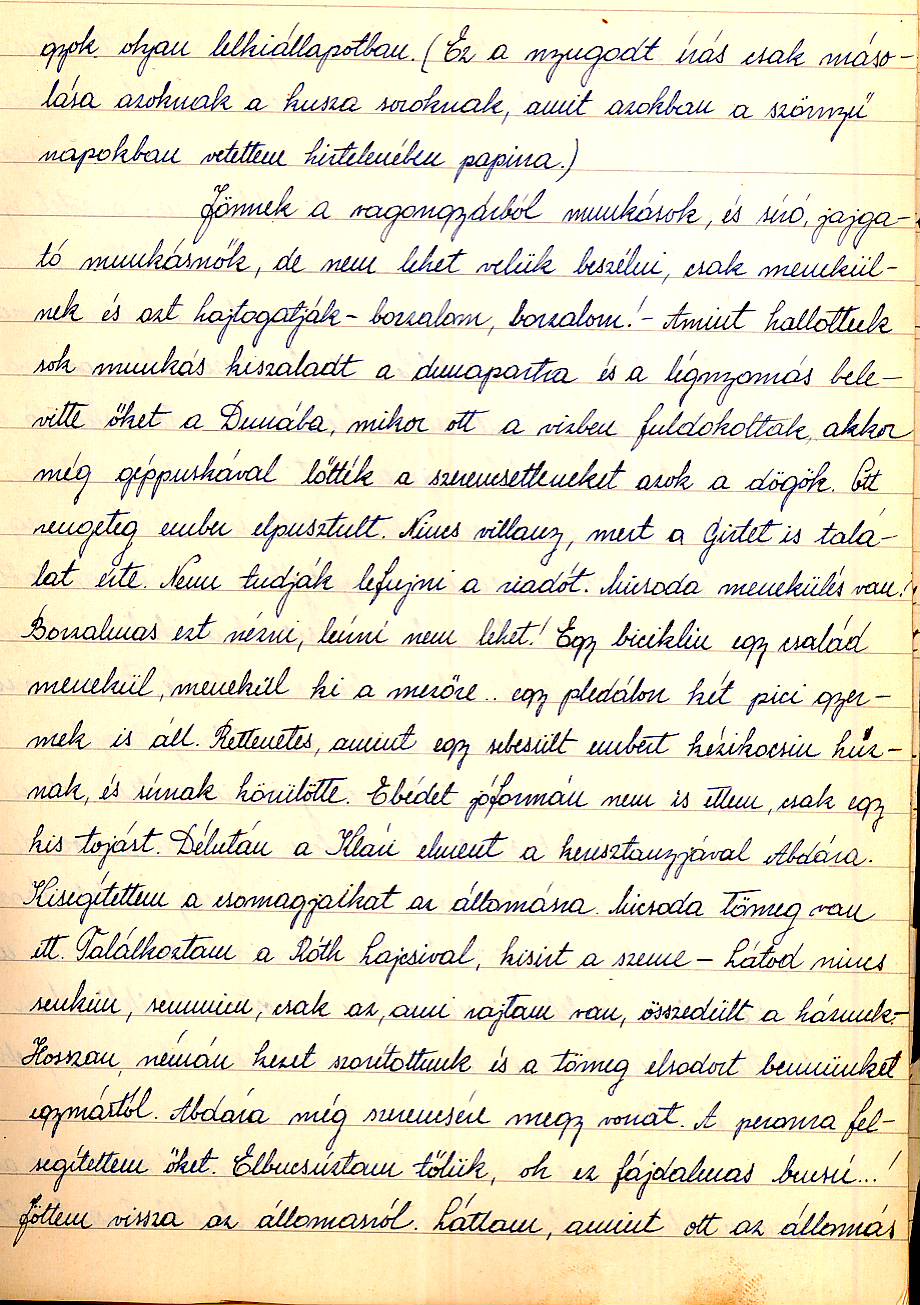 gyok olyan lelkiállapotban. (Ez a nyugodt irás csak máso-
lása azoknak a kusza soroknak, amit azokban a szörnyű
napokban vetettem hirtelenében papirra.)
Jönnek a vagongyárból munkások, és síró, jajga-
tó munkásnők, de nem lehet velük beszélni, csak menekül-
nek és azt hajtogatják - borzalom, borzalom! - Amint hallottuk
sok munkás kiszaladt a dunapartra és a légnyomás bele-
vitte őket a Dunába, mikor ott a vizben fuldokoltak, akkor
még géppuskával lőtték a szerencsétleneket azok a dögök. Ott
rengeteg ember elpusztult. Nincs villany, mert a Girtet is talá-
lat érte. Nem tudják lefujni a riadót. Micsoda menekülés van!
Borzalmas ezt nézni, leírni nem lehet! Egy biciklin egy család
menekül, menekül ki a mezőre.. egy pledálon két pici gyer-
mek is áll. Rettenetes, amint egy sebesült embert kézikocsin húz-
nak, és sírnak körülötte. Ebédet jóformán nem is ettem, csak egy
kis tojást. Délután a Klári elment a keresztanyjával Abdára.
Kisegítettem a csomagjaikat az állomásra. Micsoda tömeg van
itt. Találkoztam a Róth Lajcsival, kisírt a szeme - Látod nincs
senkim, semmim, csak az, ami rajtam van, összedűlt a házunk.
Hosszan, némán kezet szorítottunk és a tömeg elsodort bennünket
egymástól. Abdára még szerencsére megy vonat. A peronra fel-
segítettem őket. Elbucsúztam tőlük, oh ez fájdalmas bucsú...!
Jöttem vissza az állomásról. Láttam, amint ott az állomás